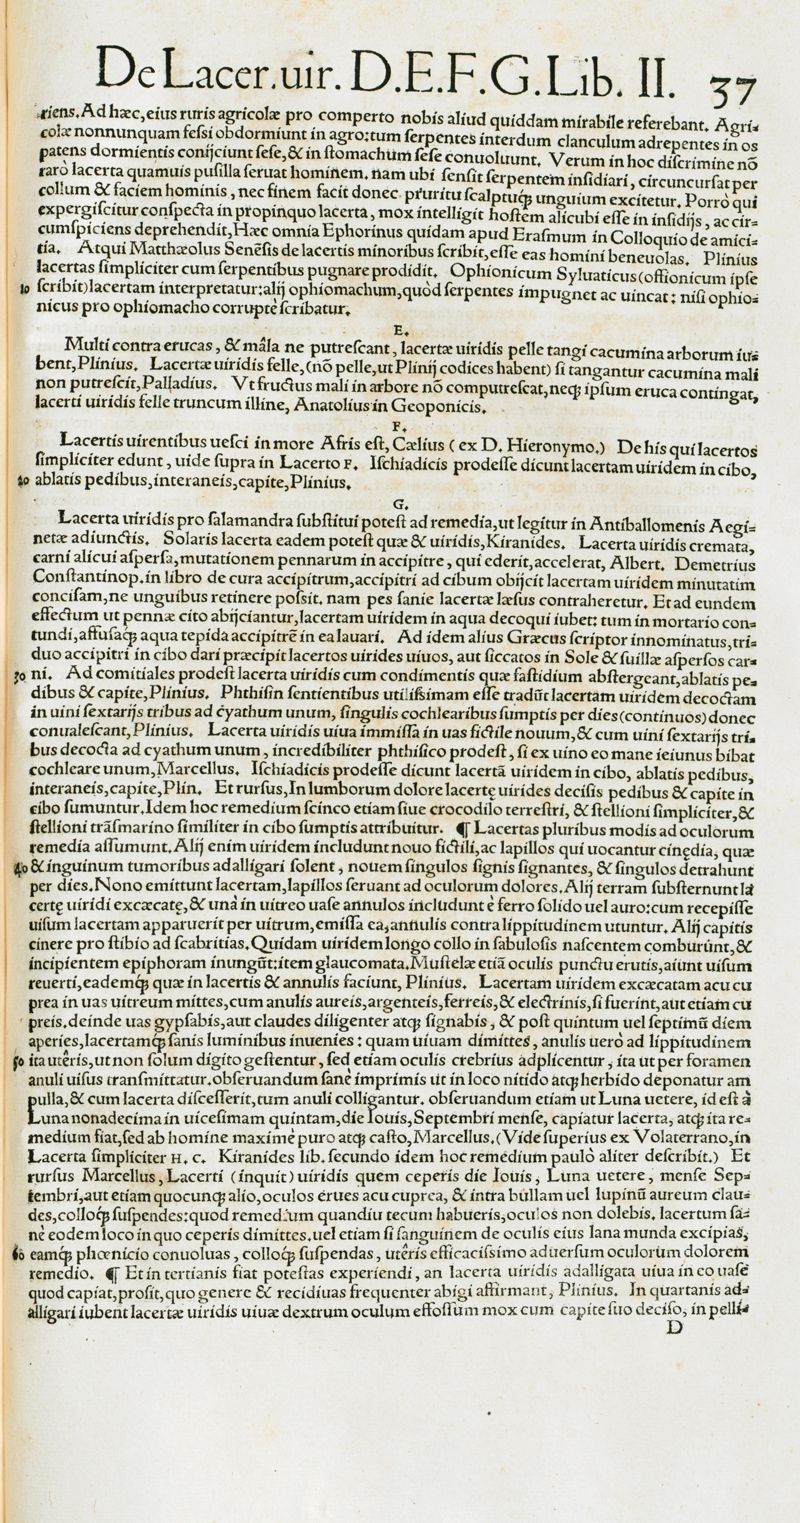 De Lacer. uir. D.E.F.G. Lib. II. 37
riens. Ad hæc, eius ruris agricolæ pro comperto nobis aliud quiddam mirabile referebant. Agri-
colæ nonnunquam feſsi obdormiunt in agro: tum ſerpentes interdum clanculum adrepentes in os
patens dormientis conijciunt ſeſe, & in ſtomachum ſeſe conuoluunt. Verum in hoc diſcrimine nõ
raro lacerta quamuis puſilla ſeruat hominem. nam ubi ſenſit ſerpentem inſidiari, circuncurſat per
collum & faciem hominis, nec finem facit donec pruritu ſcalptuq́ꝫ unguium excitetur. Porrò qui
expergiſcitur conſpecta in propinquo lacerta, mox intelligit hoſtem alicubi eſſe in inſidijs, ac cir-
cumſpiciens deprehendit, Hæc omnia Ephorinus quidam apud Eraſmum in Colloquio de amici-
tia. Atqui Matthæolus Senẽſis de lacertis minoribus ſcribit, eſſe eas homini beneuolas. Plinius
lacertas ſimpliciter cum ſerpentibus pugnare prodidit. Ophionicum Syluaticus (offionicum ipſe
10 ſcribit) lacertam interpretatur: alij ophiomachum, quòd ſerpentes impugnet ac uincat: niſi ophio-
nicus pro ophiomacho corruptè ſcribatur.
E.
Multi contra erucas, & mâla ne putreſcant, lacertæ uiridis pelle tangi cacumina arborum iu-
bent, Plinius. Lacertæ uiridis felle, (nõ pelle, ut Plinij codices habent) ſi tangantur cacumina mali
non putreſcit, Palladius. Vt fructus mali in arbore nõ computreſcat, neqꝫ ipſum eruca contingat,
lacerti uiridis felle truncum illine, Anatolius in Geoponicis.
F.
Lacertis uirentibus ueſci in more Afris eſt, Cælius (ex D. Hieronymo.) De his qui lacertos
ſimpliciter edunt, uide ſupra in Lacerto F. Iſchiadicis prodeſſe dicunt lacertam uiridem in cibo,
20 ablatis pedibus, interaneis, capite, Plinius.
G.
Lacerta uiridis pro ſalamandra ſubſtitui poteſt ad remedia, ut legitur in Antiballomenis Aegi-
netæ adiunctis. Solaris lacerta eadem poteſt quæ & uiridis, Kiranides. Lacerta uiridis cremata,
carni alicui aſperſa, mutationem pennarum in accipitre, qui ederit, accelerat, Albert. Demetrius
Conſtantinop. in libro de cura accipitrum, accipitri ad cibum obijcit lacertam uiridem minutatim
conciſam, ne unguibus retinere poſsit. nam pes ſanie lacertæ læſus contraheretur. Et ad eundem
effectum ut pennæ cito abijciantur, lacertam uiridem in aqua decoqui iubet: tum in mortario con-
tundi, affuſaq́ꝫ aqua tepida accipitrẽ in ea lauari. Ad idem alius Græcus ſcriptor innominatus, tri-
duo accipitri in cibo dari præcipit lacertos uirides uiuos, aut ſiccatos in Sole & ſuillæ aſperſos car-
30 ni. Ad comitiales prodeſt lacerta uiridis cum condimentis quæ faſtidium abſtergeant, ablatis pe-
dibus & capite, Plinius. Phthiſin ſentientibus utiliſsimam eſſe tradũt lacertam uiridem decoctam
in uini ſextarijs tribus ad cyathum unum, ſingulis cochlearibus ſumptis per dies (continuos) donec
conualeſcant, Plinius. Lacerta uiridis uiua immiſſa in uas fictile nouum, & cum uini ſextarijs tri-
bus decocta ad cyathum unum, incredibiliter phthiſico prodeſt, ſi ex uino eo mane ieiunus bibat
cochleare unum, Marcellus. Iſchiadicis prodeſſe dicunt lacertã uiridem in cibo, ablatis pedibus,
interaneis, capite, Plin. Et rurſus, In lumborum dolore lacertę uirides deciſis pedibus & capite in
cibo ſumuntur. Idem hoc remedium ſcinco etiam ſiue crocodilo terreſtri, & ſtellioni ſimpliciter, &
ſtellioni trãſmarino ſimiliter in cibo ſumptis attribuitur. ¶ Lacertas pluribus modis ad oculorum
remedia aſſumunt. Alij enim uiridem includunt nouo fictili, ac lapillos qui uocantur cinędia, quæ
40 & inguinum tumoribus adalligari ſolent, nouem ſingulos ſignis ſignantes, & ſingulos detrahunt
per dies. Nono emittunt lacertam, lapillos ſeruant ad oculorum dolores. Alij terram ſubſternunt la
certę uiridi excæcatę, & unà in uitreo uaſe annulos includunt è ferro ſolido uel auro: cum recepiſſe
uiſum lacertam apparuerit per uitrum, emiſſa ea, annulis contra lippitudinem utuntur. Alij capitis
cinere pro ſtibio ad ſcabritias. Quidam uiridem longo collo in ſabuloſis naſcentem comburũnt, &
incipientem epiphoram inungũt: item glaucomata. Muſtelæ etiã oculis punctu erutis, aiunt uiſum
reuerti, eademq́ꝫ quæ in lacertis & annulis faciunt, Plinius. Lacertam uiridem excæcatam acu cu
prea in uas uitreum mittes, cum anulis aureis, argenteis, ferreis, & electrinis, ſi fuerint, aut etiam cu
preis. deinde uas gypſabis, aut claudes diligenter atqꝫ ſignabis, & poſt quintum uel ſeptimũ diem
aperies, lacertamq́ꝫ ſanis luminibus inuenies: quam uiuam dimittes, anulis uerò ad lippitudinem
50 ita utêris, ut non ſolum digito geſtentur, ſed etiam oculis crebrius adplicentur, ita ut per foramen
anuli uiſus tranſmittatur. obſeruandum ſanè imprimis ut in loco nitido atqꝫ herbido deponatur am
pulla, & cum lacerta diſceſſerit, tum anuli colligantur. obſeruandum etiam ut Luna uetere, id eſt à
Luna nonadecima in uiceſimam quintam, die Iouis, Septembri menſe, capiatur lacerta, atq́ꝫ ita re-
medium fiat, ſed ab homine maximè puro atqꝫ caſto, Marcellus. (Vide ſuperius ex Volaterrano, in
Lacerta ſimpliciter H. c. Kiranides lib. ſecundo idem hoc remedium paulò aliter deſcribit.) Et
rurſus Marcellus, Lacerti (inquit) uiridis quem ceperis die Iouis, Luna uetere, menſe Sep-
tembri, aut etiam quocunqꝫ alio, oculos erues acu cuprea, & intra bullam uel lupinũ aureum clau-
des, colloq́ꝫ ſuſpendes: quod remedium quandiu tecum habueris, oculos non dolebis. lacertum ſa-
nè eodem loco in quo ceperis dimittes. uel etiam ſi ſanguinem de oculis eius lana munda excipias,
60 eamq́ꝫ phœnicio conuoluas, colloq́ꝫ ſuſpendas, utêris efficaciſsimo aduerſum oculorum dolorem
remedio. ¶ Et in tertianis fiat poteſtas experiendi, an lacerta uiridis adalligata uiua in eo uaſe
quod capiat, proſit, quo genere & recidiuas frequenter abigi affirmant, Plinius. In quartanis ad-
alligari iubent lacertæ uiridis uiuæ dextrum oculum effoſſum mox cum capite ſuo deciſo, in pelli-
D